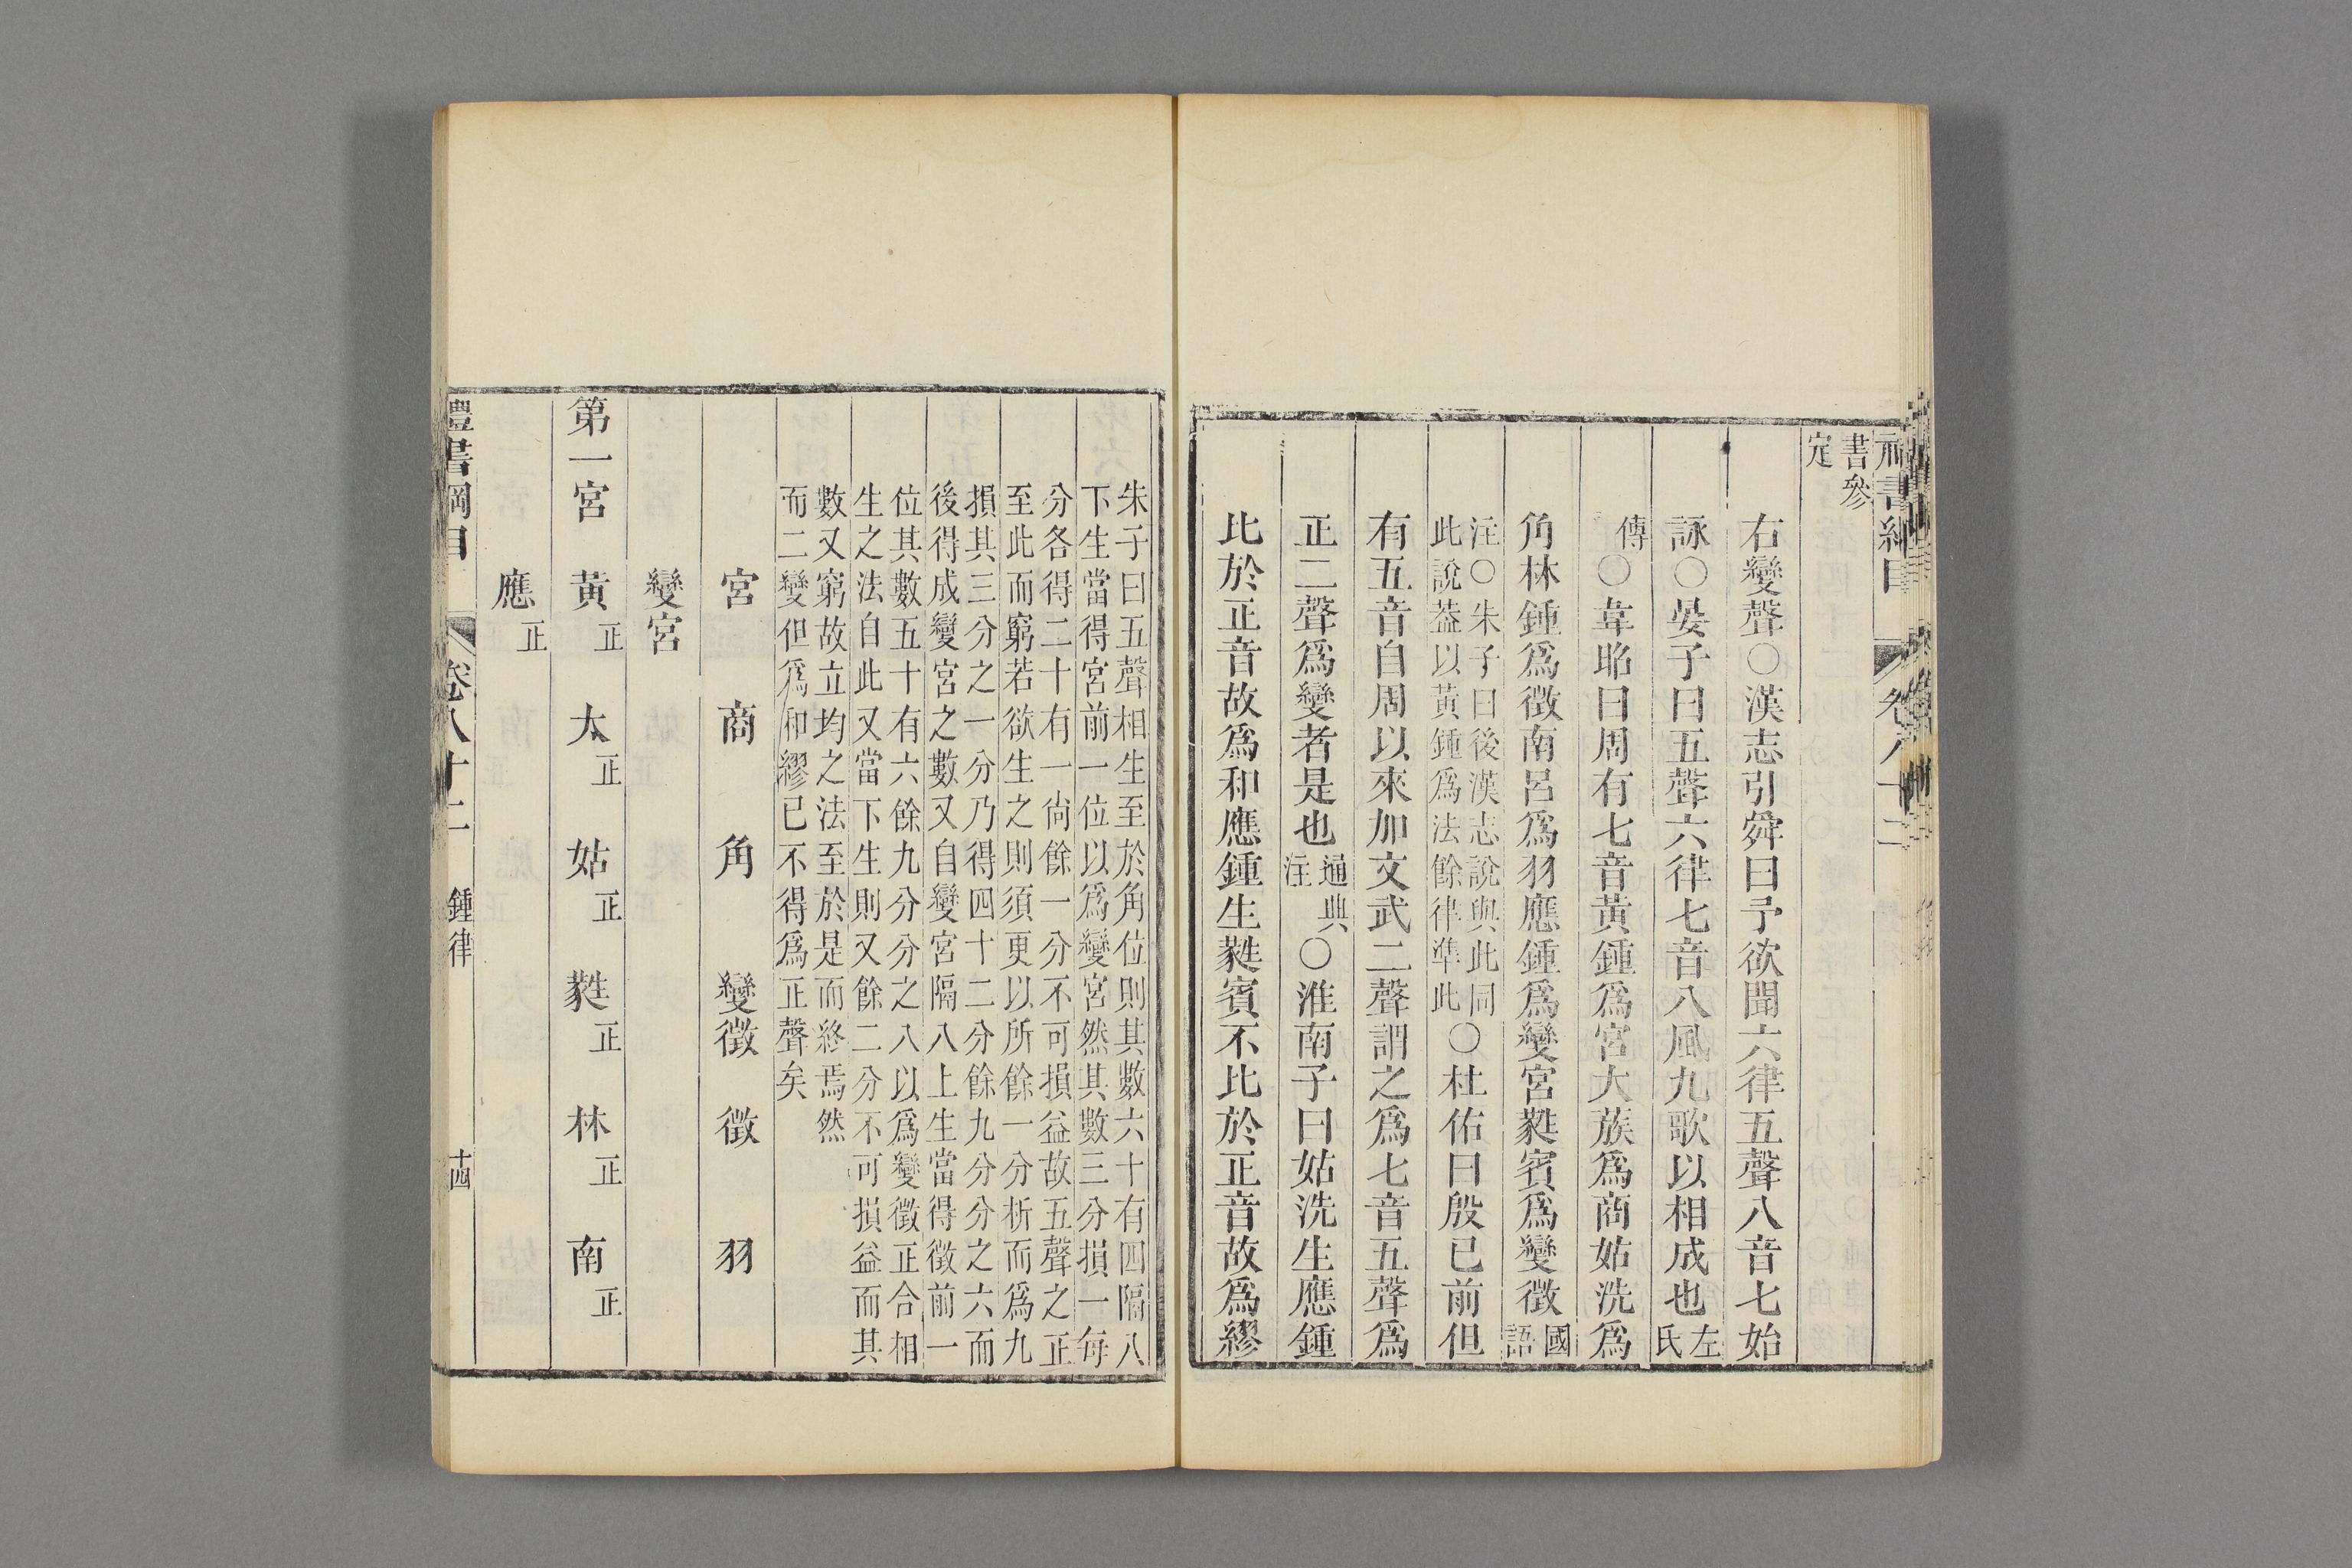 書參
定
右變聲〇漢志引舜曰予欲聞六律五聲八音七始
詠〇晏子曰五聲六律七音八風九歌以相成也左氏
傳〇韋昭曰周有七音黃鍾爲宮大蔟爲商姑洗爲
角林鍾爲徵南呂爲羽應鍾爲變宮蕤賓爲變徵國語
注〇朱子曰後漢志說與此同
此說葢以黃鍾爲法餘律準此〇杜佑曰殷已前但
有五音自周以來加文武二聲謂之爲七音五聲爲
正二聲爲變者是也通典注〇淮南子曰姑洗生應鍾
比於正音故爲和應鍾生蕤賓不比於正音故爲繆
朱子曰五聲相生至於角位則其數六十有四隔八
下生當得宮前一位以爲變宮然其數三分損一每
分各得二十有一尙餘一分不可損益故五聲之正
至此而窮若欲生之則須更以所餘一分析而爲九
損其三分之一分乃得四十二分餘九分分之六而
後得成變宮之數又自變宮隔八上生當得徵前一
位其數五十有六餘九分分之八以爲變徵正合相
生之法自此又當下生則又餘二分不可損益而其
數又窮故立均之法至於是而終焉然
而二變但爲和繆已不得爲正聲矣
宮 商 角 變徵 徵 羽
變宮
第一宮 黃正 太正 姑正 蕤正 林正 南正
應正
禮書綱目 卷八十二 鍾律 十四